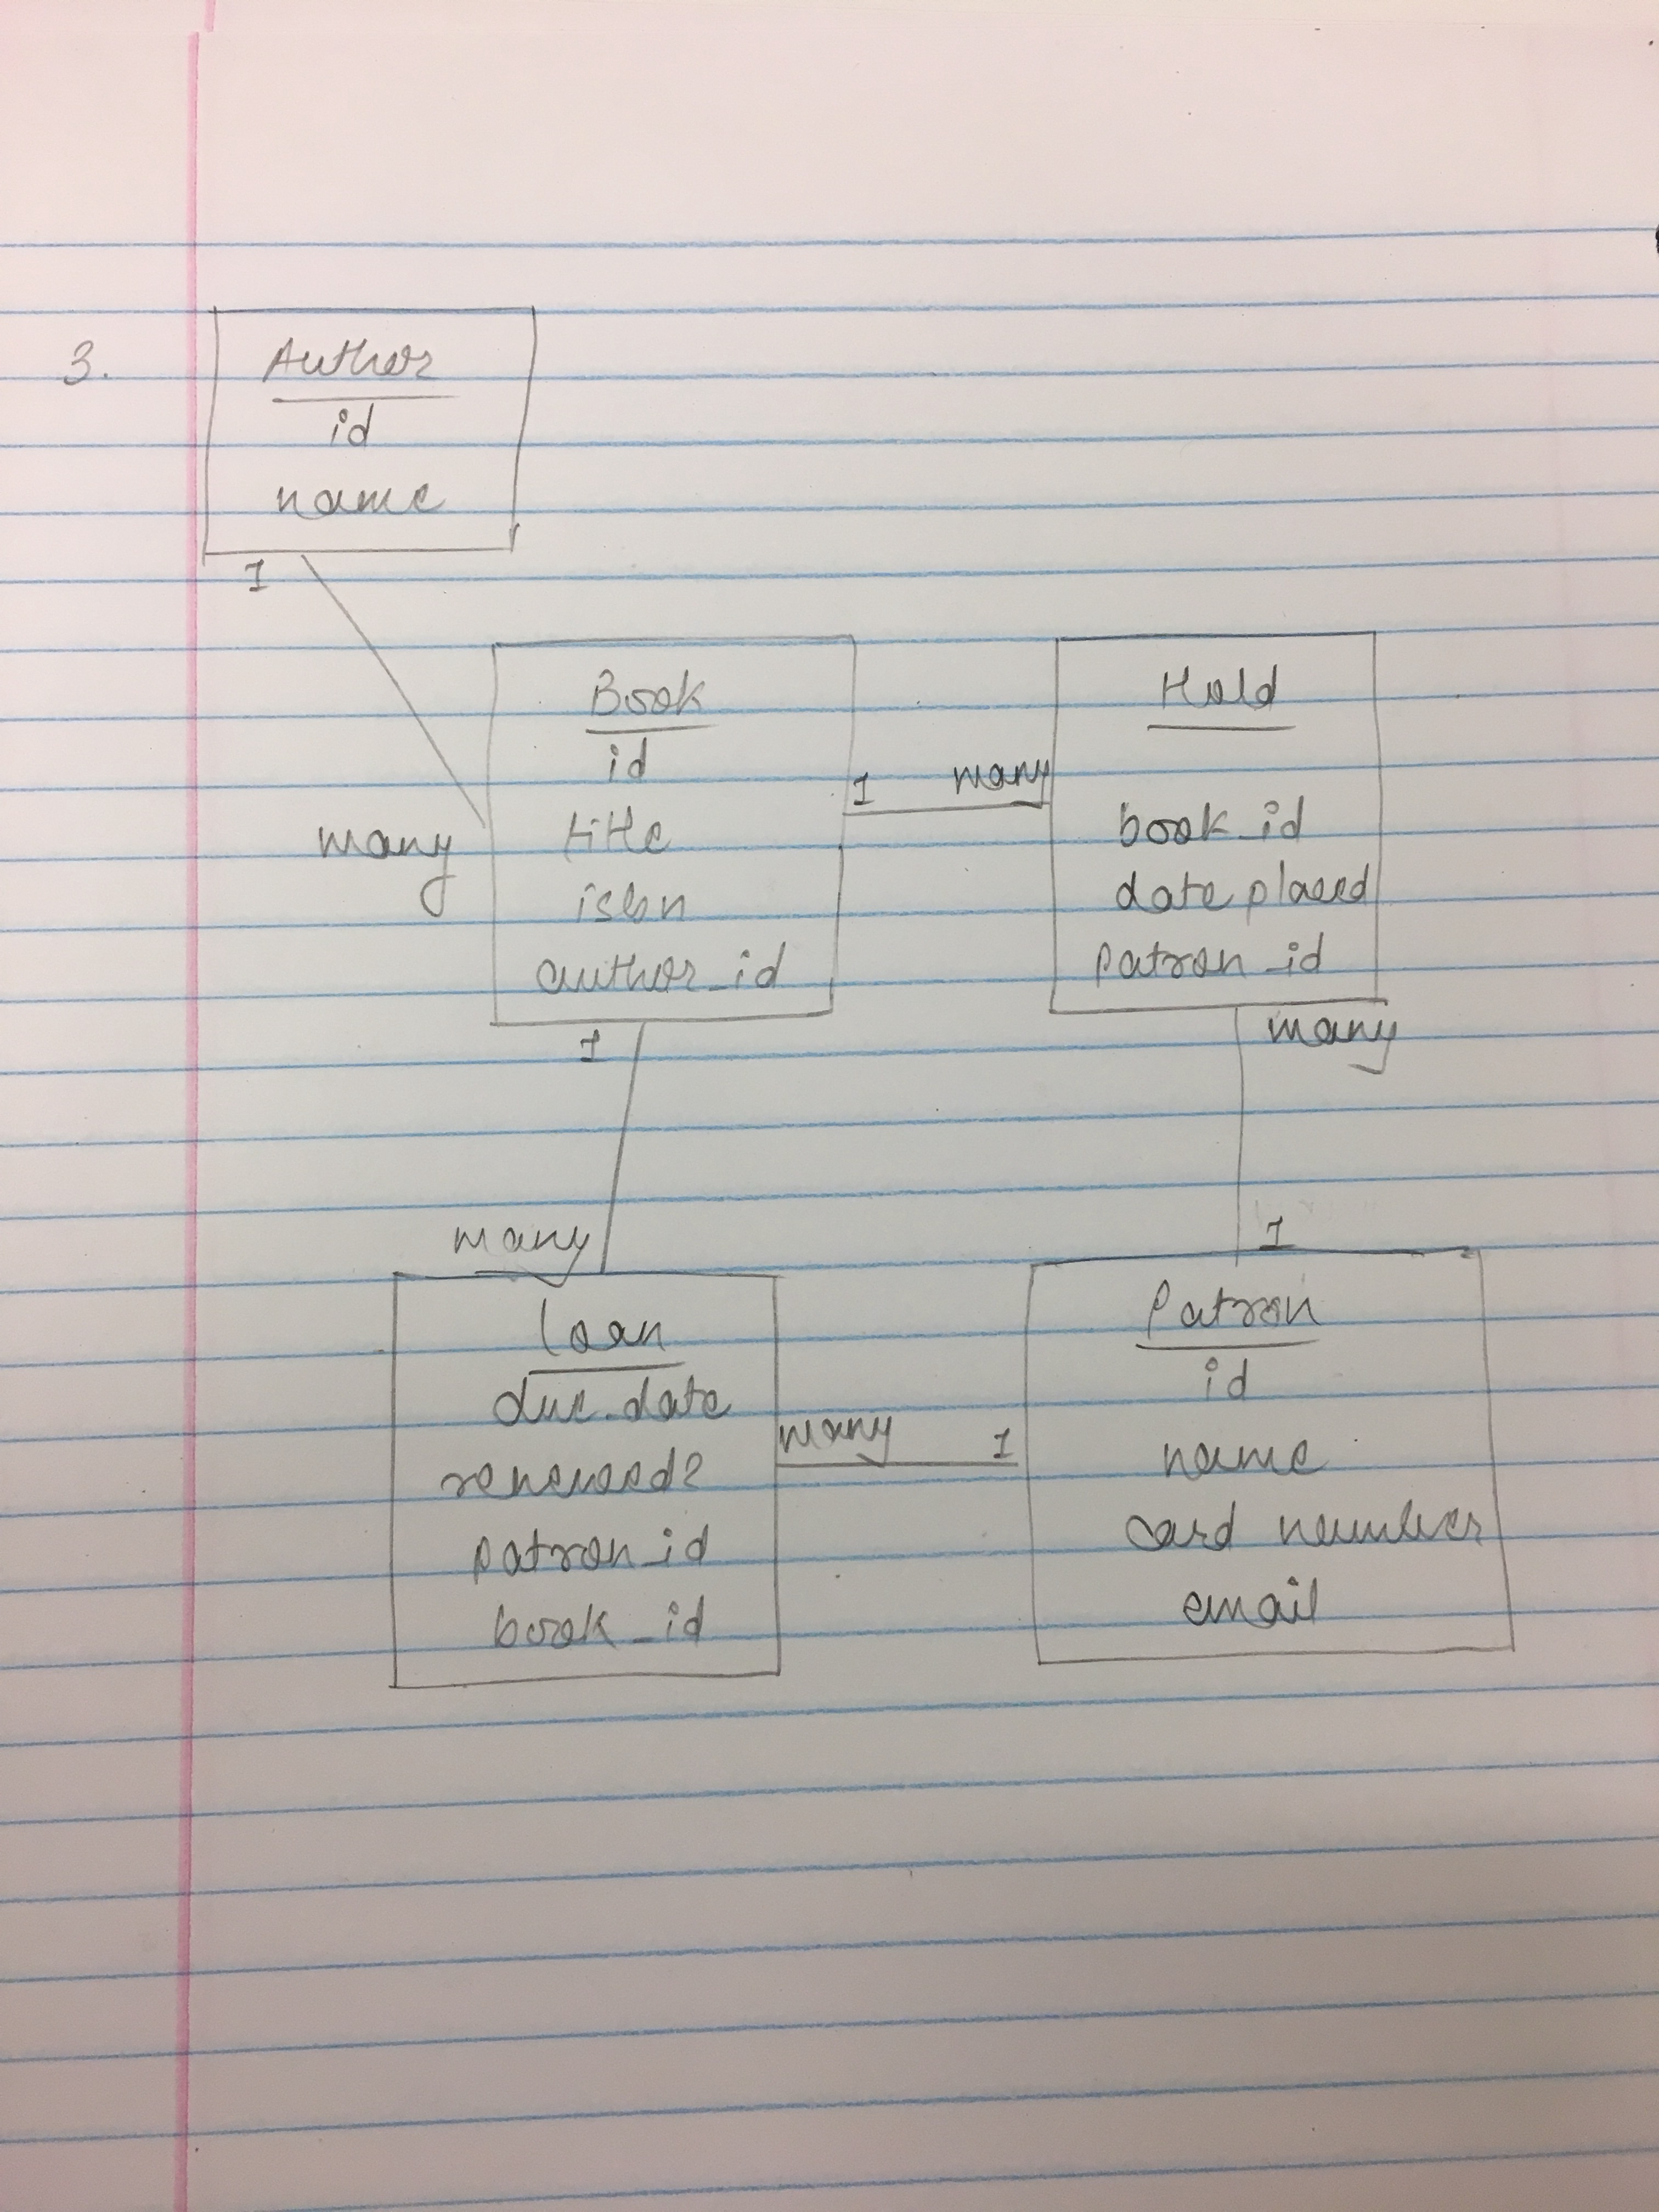 3.
Author
id
name
1
many
Book
id
title
isbn
author_id
1 many
Hold
book_id
date placed
patron_id
1
many
many
1
Loan
due_date
renewed?
patron_id
book_id
many 1
Patron
id
name
card number
email